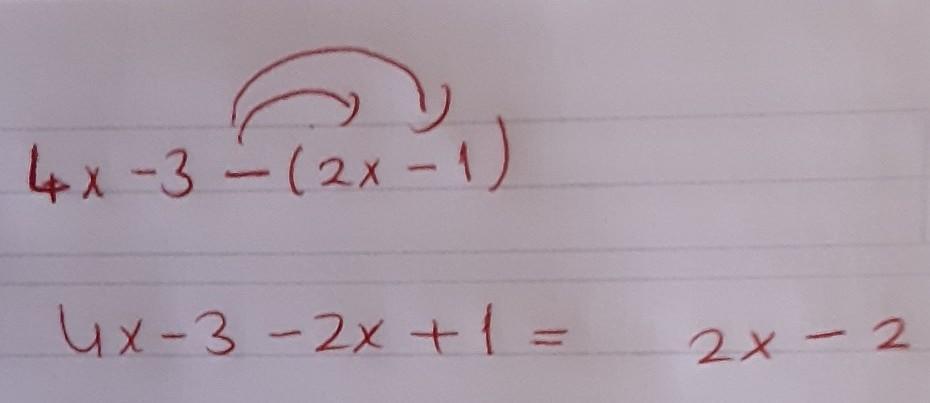 4x - 3 - (2x - 1)
4x - 3 - 2x + 1 = 2x - 2